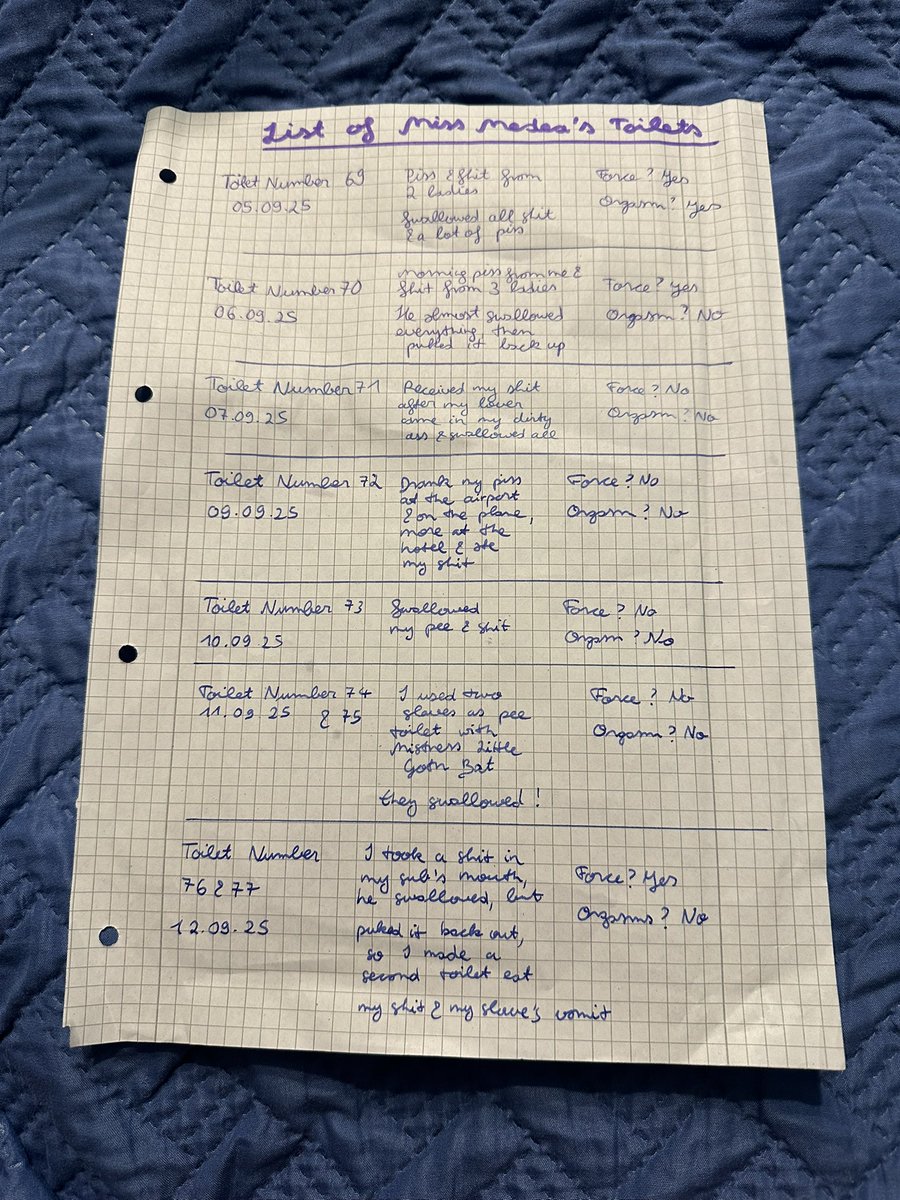 List of Miss Medea's Toilets
Toilet Number 69
05.09.25
Piss & Shit from
2 ladies
Swallowed all shit
& a lot of piss
Force? Yes
Orgasm? Yes
Toilet Number 70
06.09.25
Morning piss from me &
Shit from 3 ladies
He almost swallowed
everything then
puked it back up
Force? Yes
Orgasm? No
Toilet Number 71
07.09.25
Received my shit
after my lover
came in my dirty
ass & swallowed all
Force? No
Orgasm? No
Toilet Number 72
09.09.25
Drank my piss
at the airport
& on the plane,
more at the
hotel & ate
my shit
Force? No
Orgasm? No
Toilet Number 73
10.09.25
Swallowed
my pee & shit
Force? No
Orgasm? No
Toilet Number 74
11.09.25 & 75
I used two
slaves as pee
toilet with
Mistress Little
Goth Bat
they swallowed!
Force? No
Orgasm? No
Toilet Number
76 & 77
12.09.25
I took a shit in
my sub's mouth,
he swallowed, but
puked it back out,
so I made a
second toilet eat
my shit & my slave's vomit
Force? Yes
Orgasms? No